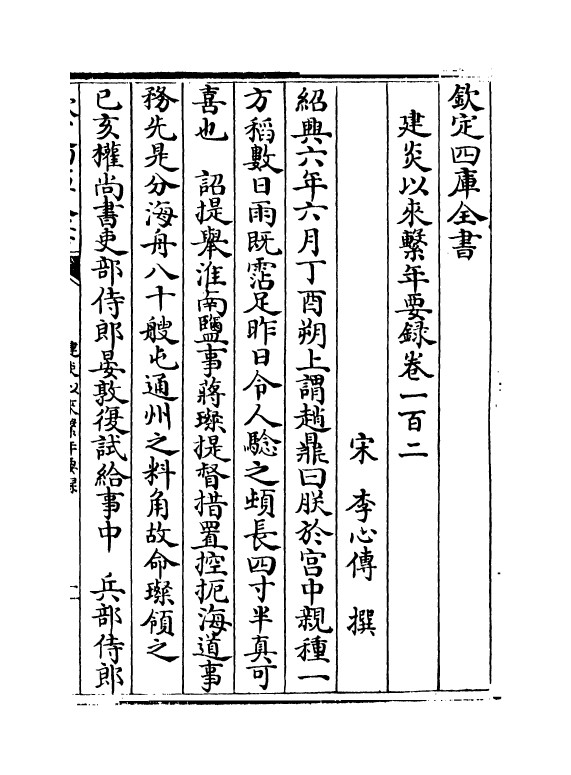 欽定四庫全書
建炎以來繫年要録卷一百二
宋　李心傳　撰
紹興六年六月丁酉朔上謂趙鼎曰朕於宫中親種一
方稻數日雨既霑足昨日令人驗之頓長四寸半真可
喜也　詔提舉淮南鹽事蔣璨提督措置控扼海道事
務先是分海舟八十艘屯通州之料角故命璨領之
已亥權尚書吏部侍郎晏敦復試給事中　兵部侍郎
建炎以來繫年要録
一